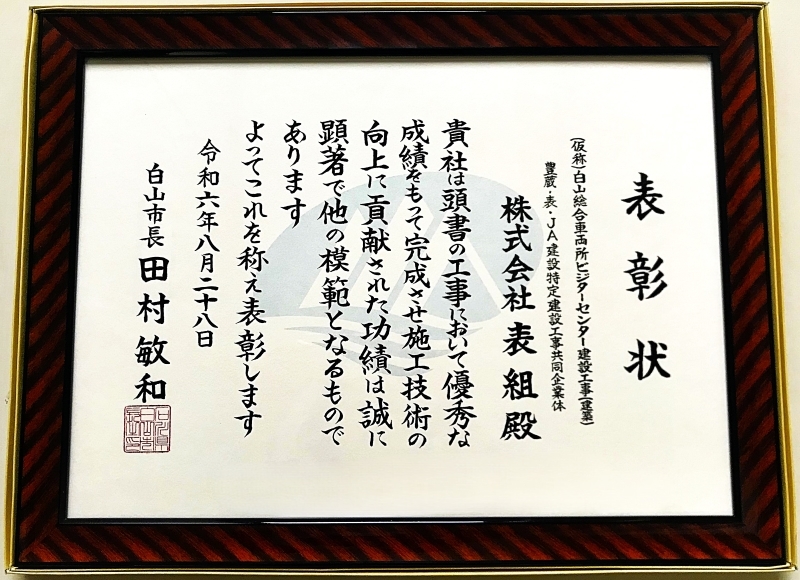 表彰状
(仮称)白山総合車両所ビジターセンター建設工事(建築)
豊蔵・表・JA建設特定建設工事共同企業体
株式会社表組殿
貴社は頭書の工事において優秀な
成績をもって完成させ施工技術の
向上に貢献された功績は誠に
顕著で他の模範となるもので
あります
よってこれを称え表彰します
令和六年八月二十八日
白山市長 田村敏和